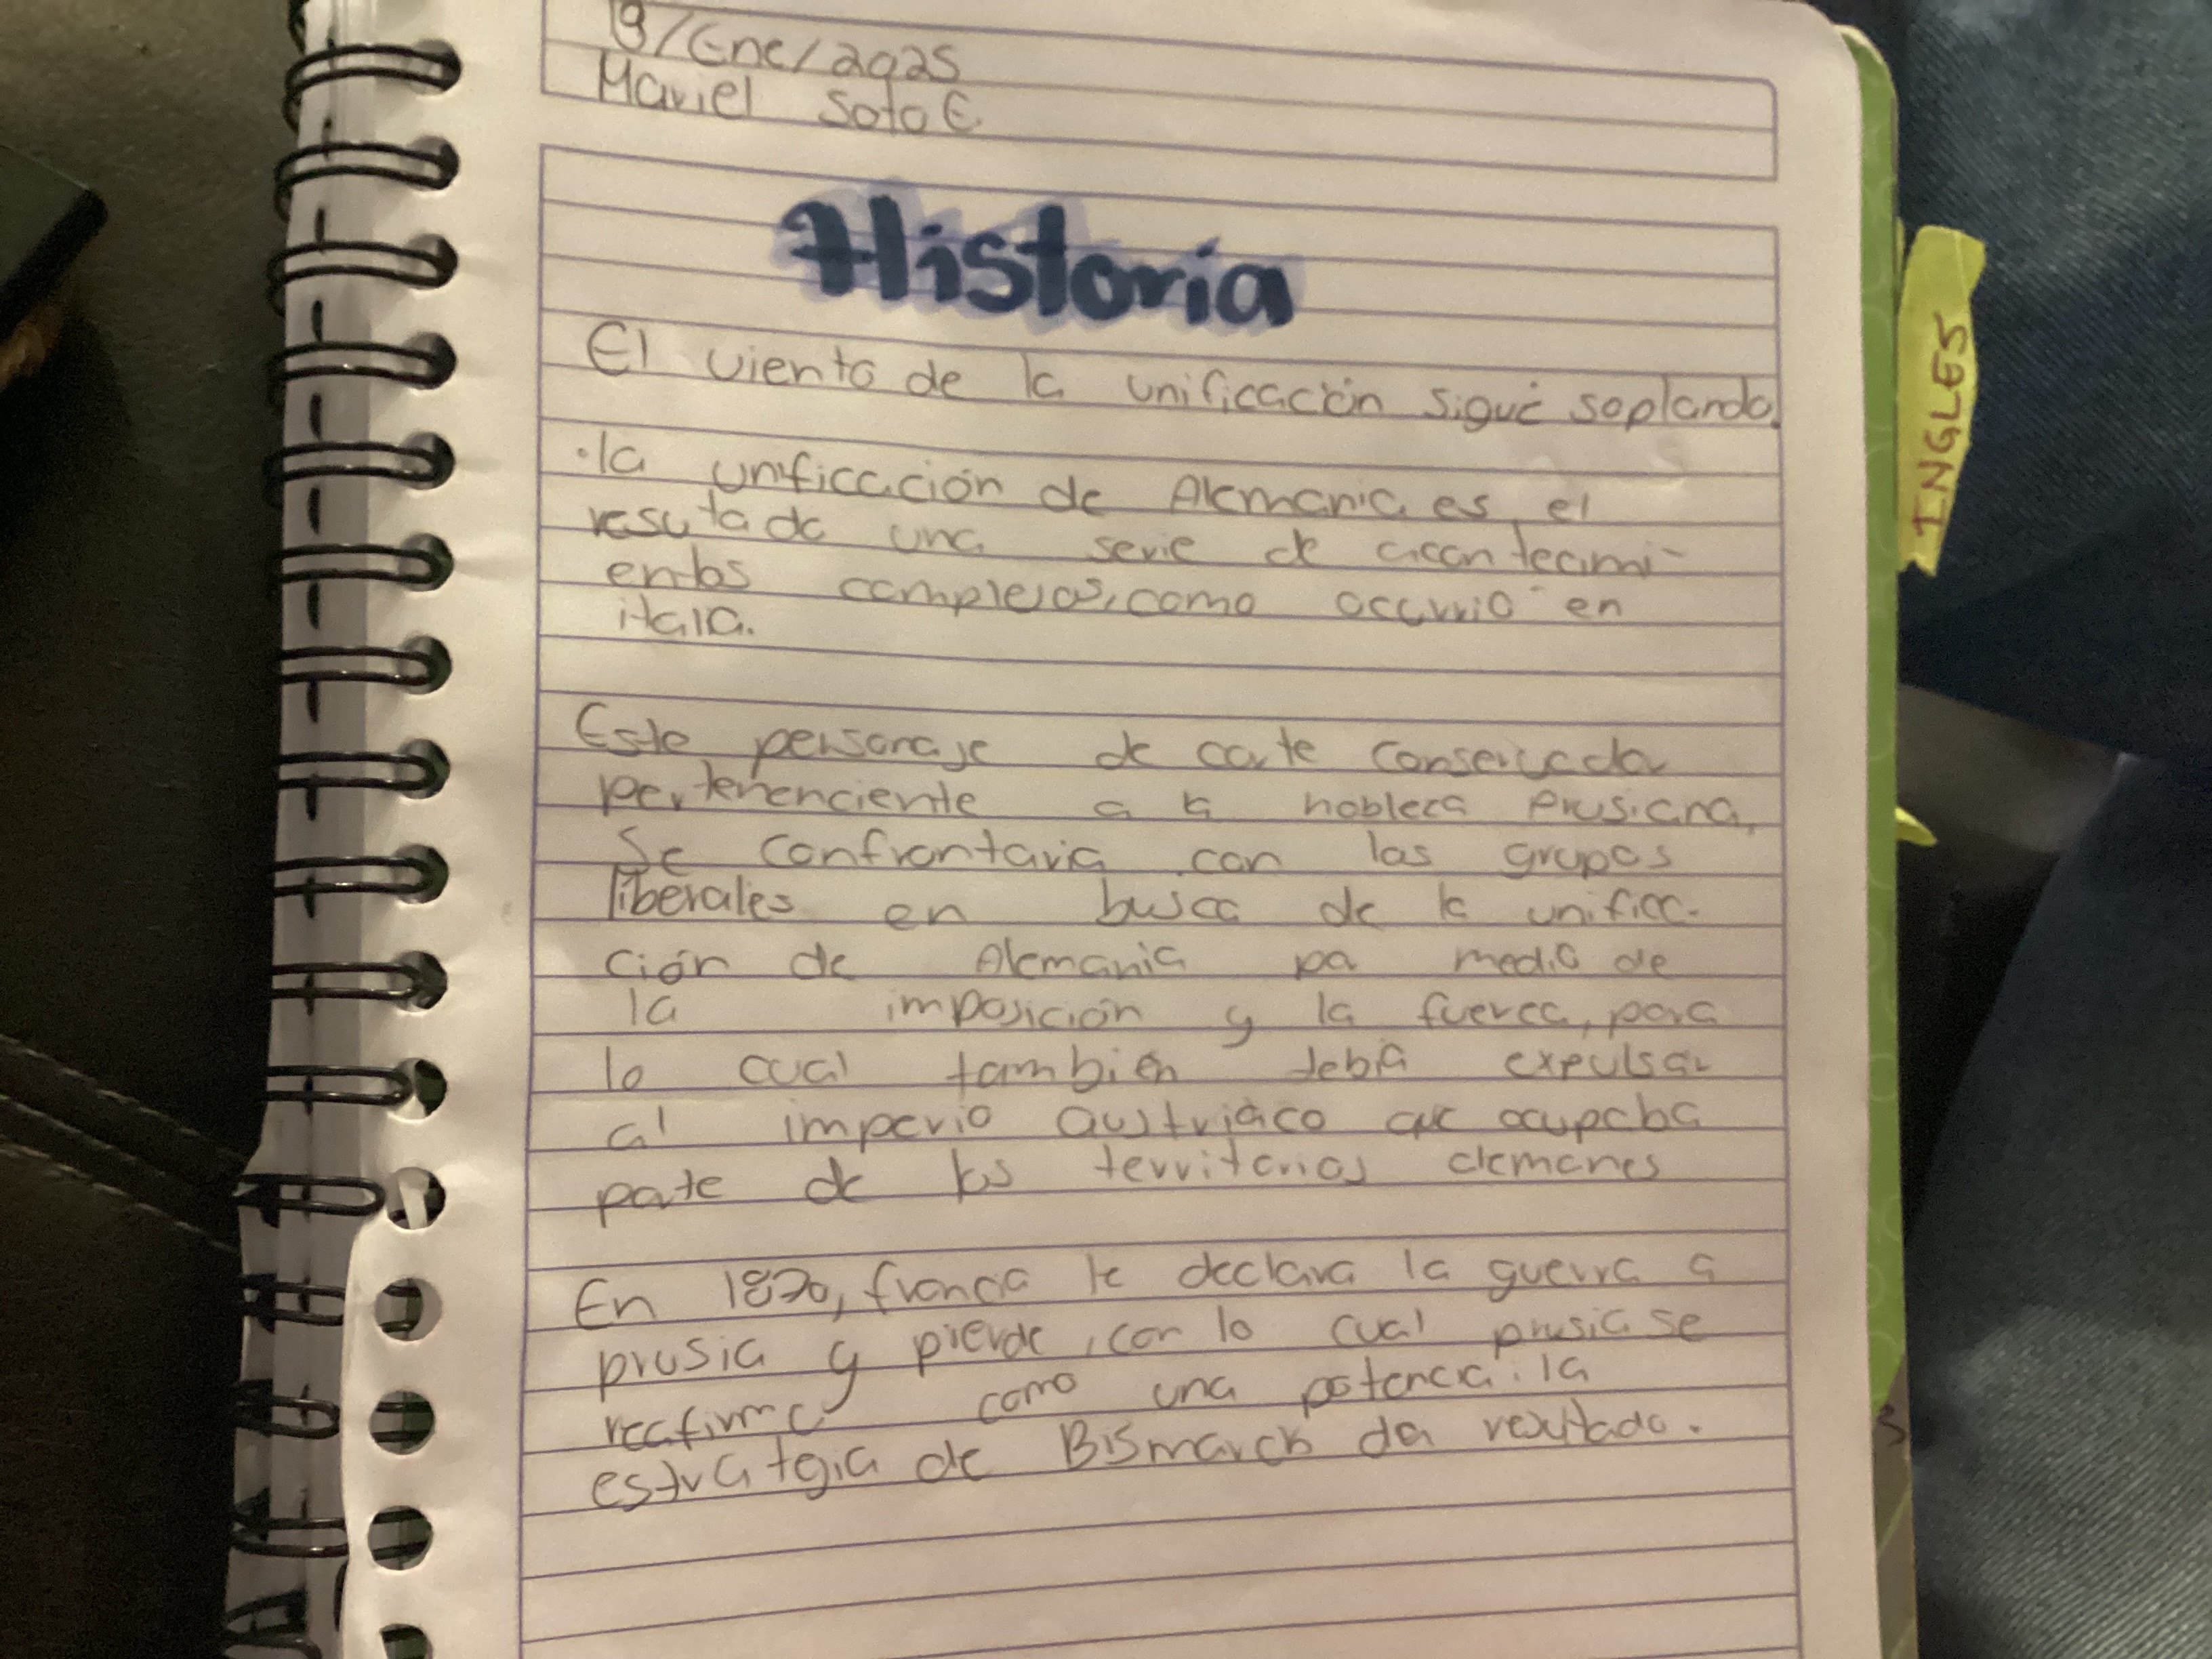 13/Ene/2025
Mariel Soto E.
Historia
El viento de la unificación sigue soplando.
•la unificación de Alemania es el
resutado una serie de acontecimi-
entos complejos, como ocurrio en
itala.
Este personaje de corte conservador
pertenenciente a la nobleza Prusiana,
Se confrontaria con los grupos
liberales en busca de la unifica-
ción de Alemania por medio de
la imposición y la fuerza, para
lo cual también debia expulsar
al imperio austriaco que ocupaba
parte de los territorios alemanes
En 1870, francia le declara la guerra a
prusia y pierde, con lo cual prusia se
reafirma como una potencia: la
estratgia de Bismarck da resultado.
INGLES